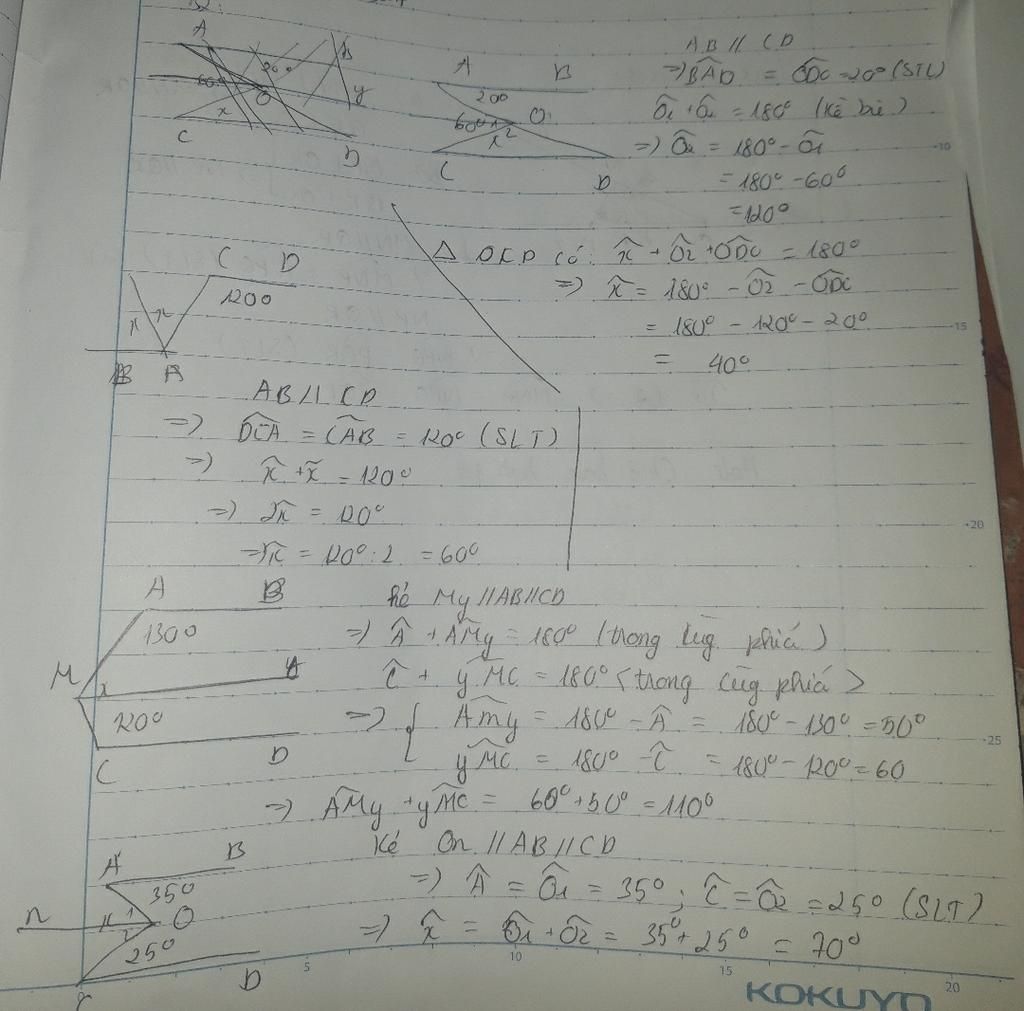 A B
20°
60° O
y
x
C D
A B
20°
60° 1 O
x 2
C D
AB // CD
=) BÂD = ODC = 20° (STL)
Ô1 + Ô2 = 180° (kề bù)
=) Ô2 = 180° - Ô1
= 180° - 60°
= 120°
Δ OCD có: x̂ + Ô2 + ODC = 180°
=) x̂ = 180° - Ô2 - ODC
= 180° - 120° - 20°
= 40°
C D
120°
x x
B A
AB // CD
=) DCA = CAB = 120° (SLT)
=) x̂ + x̂ = 120°
=) 2x̂ = 120°
=) x̂ = 120° : 2 = 60°
A B
130°
M x y
120°
C D
kẻ My // AB // CD
=) Â + AMy = 180° (trong cùg phiá)
Ĉ + yMC = 180° (trong cùg phiá)
=) { AMy = 180° - Â = 180° - 130° = 50°
yMC = 180° - Ĉ = 180° - 120° = 60
=) AMy + yMC = 60° + 50° = 110°
A B
35°
n x 1 O
2
25°
C D
Kẻ On // AB // CD
=) Â = Ô1 = 35° ; Ĉ = Ô2 = 25° (SLT)
=) x̂ = Ô1 + Ô2 = 35° + 25° = 70°
10
15
20
25
5 10 15 20
KOKUYO